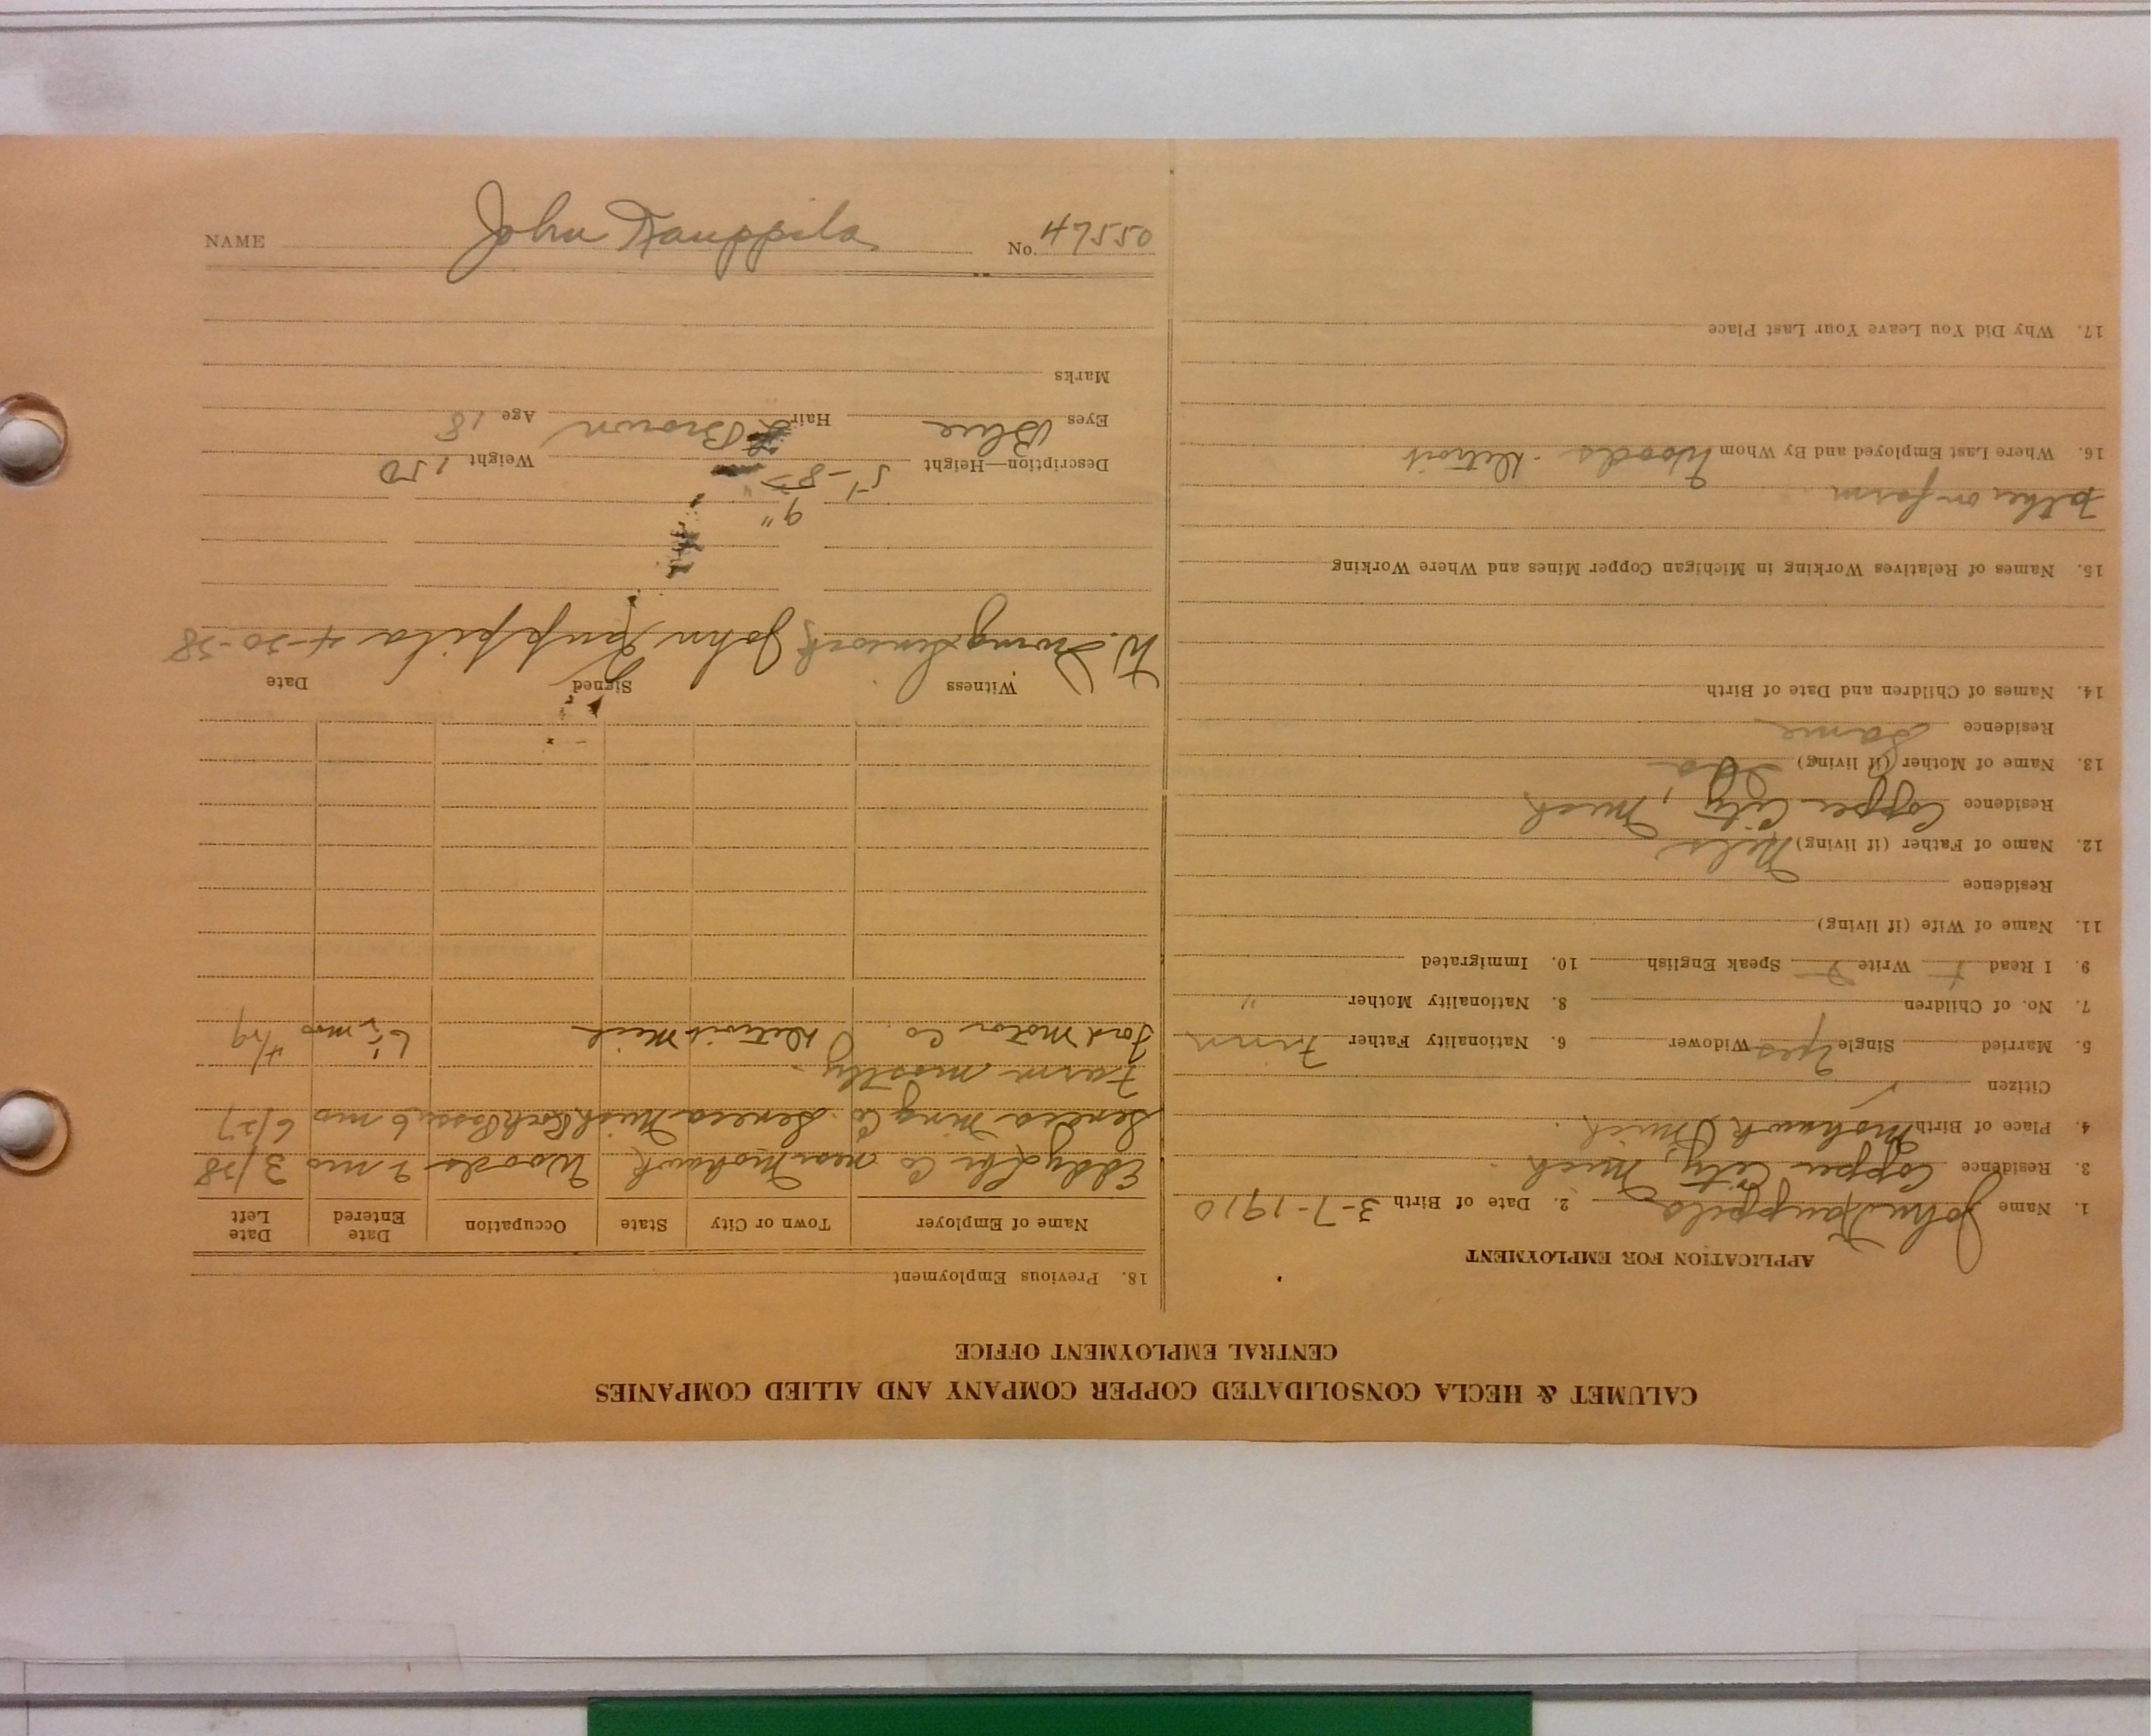 CALUMET & HECLA CONSOLIDATED COPPER COMPANY AND ALLIED COMPANIES
CENTRAL EMPLOYMENT OFFICE
APPLICATION FOR EMPLOYMENT
1. Name John Kauppila 2. Date of Birth 3-7-1910
3. Residence Copper City, Mich.
4. Place of Birth Mohawk Mich.
Citizen ✓
5. Married Single Yes Widower 6. Nationality Father Finn
7. No. of Children 8. Nationality Mother "
9. I Read Write Speak English 10. Immigrated
11. Name of Wife (if living)
Residence
12. Name of Father (if living) Nels
Residence Copper City, Mich
13. Name of Mother (if living) Ida
Residence Same
14. Names of Children and Date of Birth
15. Names of Relatives Working in Michigan Copper Mines and Where Working
Father on farm
16. Where Last Employed and By Whom Woods - Detroit
17. Why Did You Leave Your Last Place
18. Previous Employment
Name of Employer Town or City State Occupation Date Entered Date Left
Eddy Lbr Co near Mohawk Woods 2 mo 3/28
Seneca Ming Co. Seneca Mich 6 mo 6/27
Farm mostly.
Ford Motor Co. Detroit Mich 6½ mo 4/29
Witness Signed Date
W. Irving John Kauppila 4-30-28
9"
Description—Height 5'-8" Weight 150
Eyes Blue Hair Brown Age 18
Marks
NAME John Kauppila No. 47550